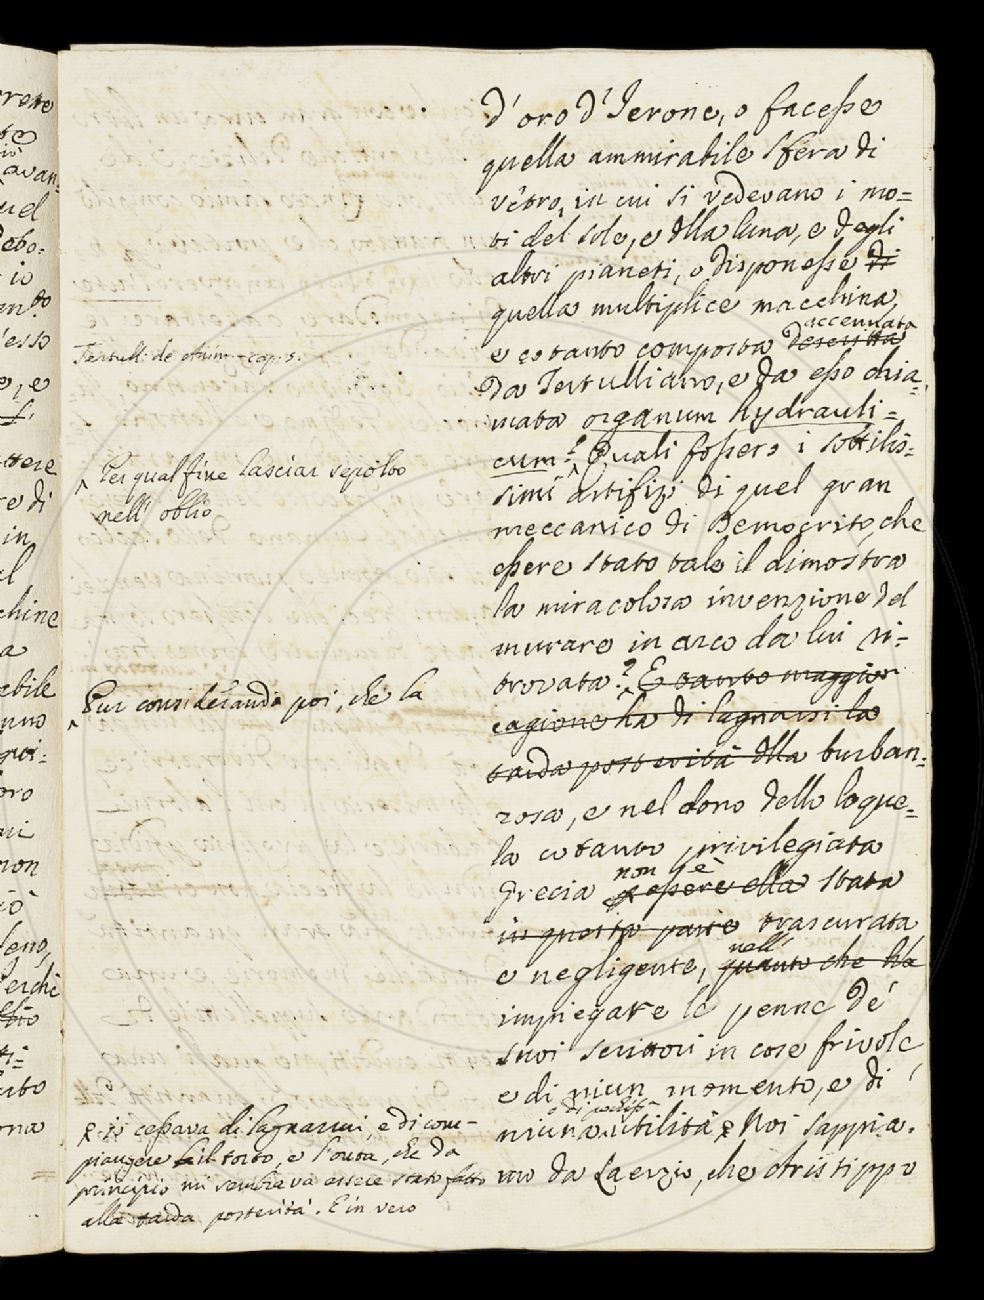 d'oro d'Ierone, o facesse
quella ammirabile sfera di
vetro, in cui si vedevano i mo=
ti del sole, e della luna, e degli
altri pianeti, o disponesse di
quella multiplice macchina,
accennata
e cotanto composta descritta
Tertull: de anim. cap. 5.
da Tertulliano, e da esso chia=
mata organum hydrauli=
cum? Quali fossero i sottilis=
Per qual fine lasciar sepolto
nell' oblio
simi artifizj di quel gran
meccanico di Democrito, che
essere stato tale il dimostra
la miracolosa invenzione del
murare in arco da lui ri=
trovata? E tanto maggior
Pur considerando poi, che la
cagione ha di lagnarsi la
tarda posterità della burban=
zosa, e nel dono della loque=
la cotanto privilegiata
non è
Grecia essere ella stata
in questa parte trascurata
nell'
e negligente, quanto che ella
impiegare le penne de'
suoi scrittori in cose frivole
e di niun momento, e di
niuna utilità Noi sappia.
mo da Laerzio, che Aristippo
si cessava di lagnarmi, e di com=
piangere il torto, e l'onta, che da
principio mi sembrava essere stato fatto
alla tarda posterità. E in vero